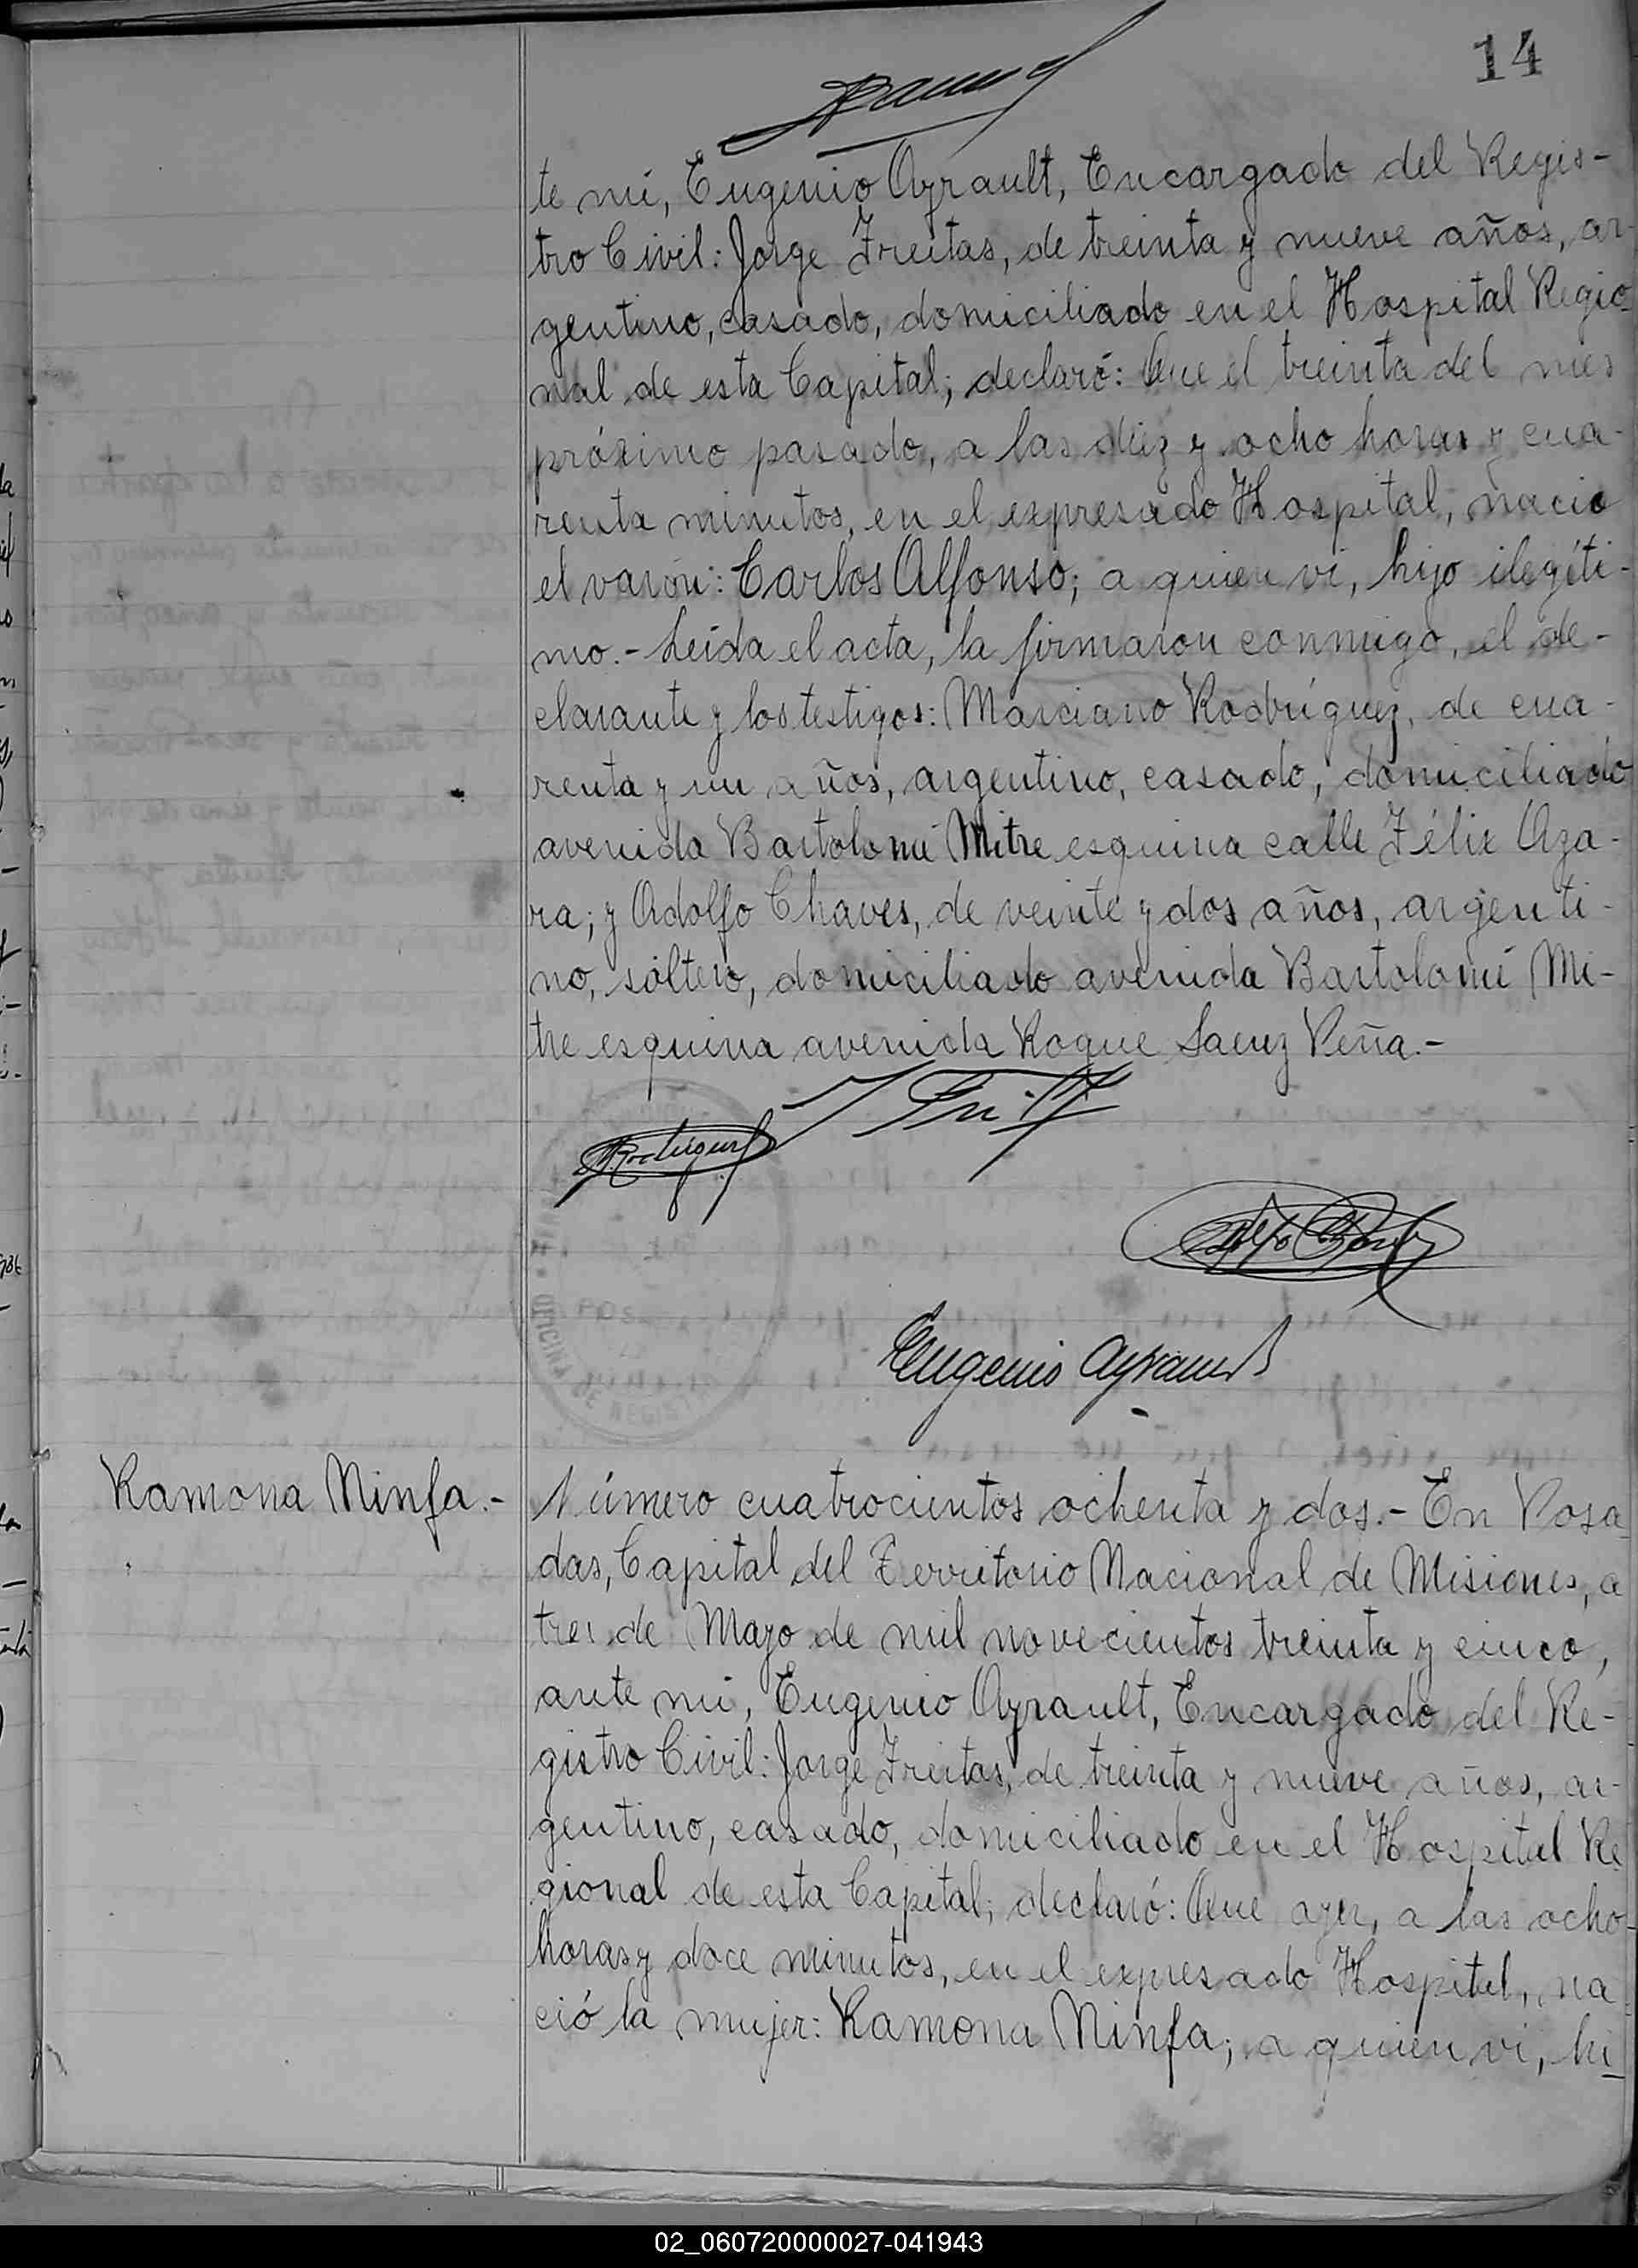 14
te mí, Eugenio Ayrault, Encargado del Regis-
tro Civil: Jorge Freitas, de treinta y nueve años, ar-
gentino, casado, domiciliado en el Hospital Regio-
nal de esta Capital; declaró: Que el treinta del mes
próximo pasado, a las diez y ocho horas y cua-
renta minutos, en el expresado Hospital, nació
el varón: Carlos Alfonso; a quien vi, hijo ilegíti-
mo.- Leída el acta, la firmaron conmigo, el de-
clarante y los testigos: Marciano Rodríguez, de cua-
renta y un años, argentino, casado, domiciliado
avenida Bartolomé Mitre esquina calle Félix Aza-
ra; y Adolfo Chaves, de veinte y dos años, argenti-
no, soltero, domiciliado avenida Bartolomé Mi-
tre esquina avenida Roque Saenz Peña.-
MRodriguez
Adolfo Chaves
OFICINA DE REGISTRO
POS
Eugenio Ayrault
Ramona Ninfa.-
Número cuatrocientos ochenta y dos.- En Posa-
das, Capital del Territorio Nacional de Misiones, a
tres de Mayo de mil novecientos treinta y cinco,
ante mí, Eugenio Ayrault, Encargado del Re-
gistro Civil: Jorge Freitas, de treinta y nueve años, ar-
gentino, casado, domiciliado en el Hospital Re-
gional de esta Capital; declaró: Que ayer, a las ocho
horas y doce minutos, en el expresado Hospital, na-
ció la mujer: Ramona Ninfa; a quien vi, hi-
02_060720000027-041943